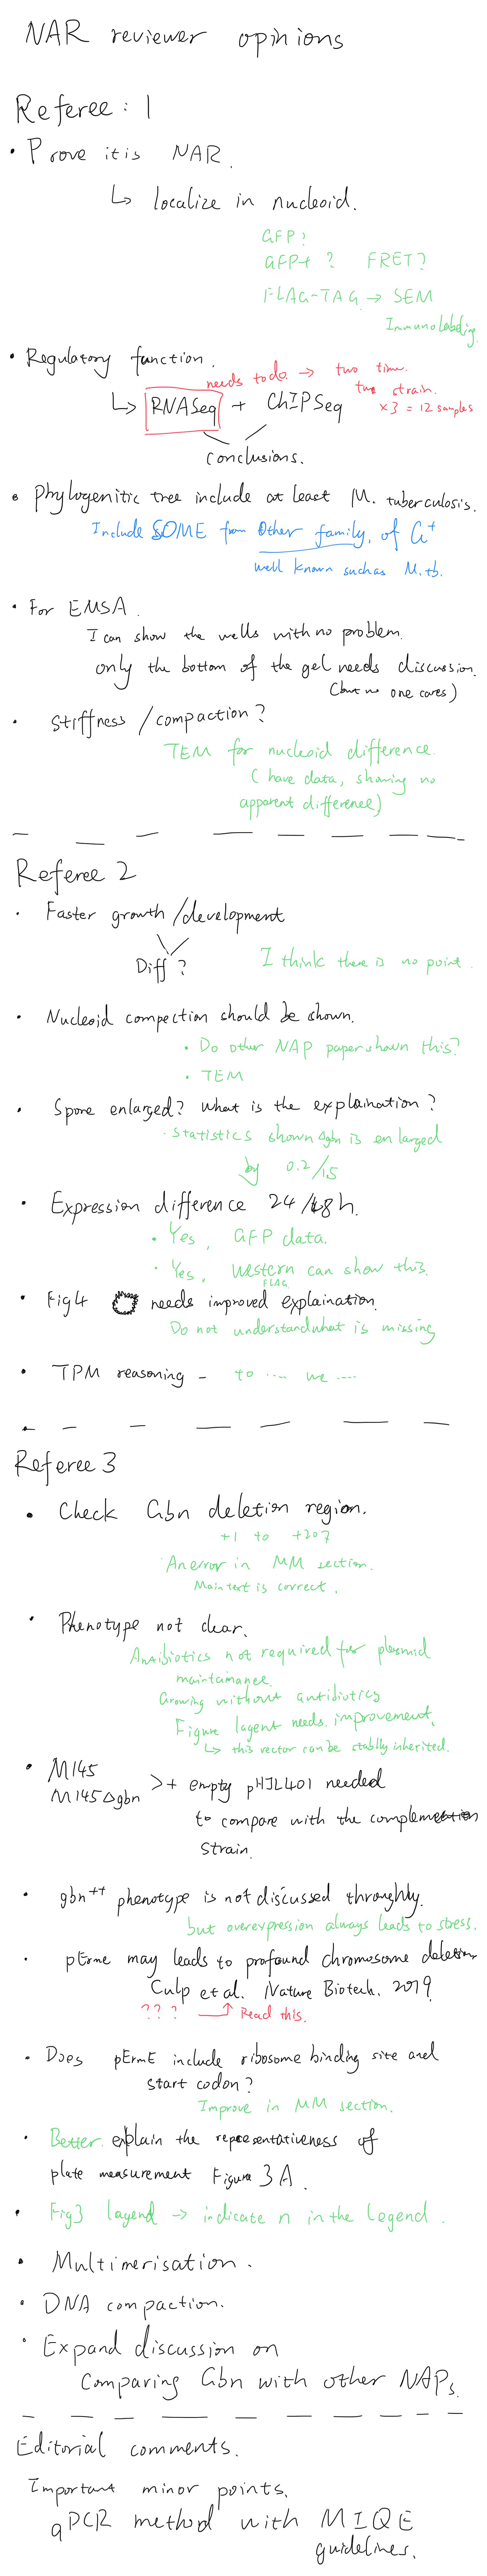 NAR reviewer opinions
Referee : 1
• Prove it is NAR.
↳ localize in nucleoid.
GFP?
GFP+ ? FRET?
FLAG-TAG → SEM
Immunolabeling.
• Regulatory function.
needs to do → two time.
two strain.
↳ RNASeq + ChIPSeq
×3 = 12 samples
conclusions.
• Phylogenitic tree include at least M. tuberculosis.
Include SOME from other family, of G+
well known such as M.tb.
• For EMSA.
I can show the wells with no problem.
only the bottom of the gel needs discussion.
(but no one cares)
• Stiffness / compaction?
TEM for nucleoid difference.
(have data, showing no
apparent difference)
Referee 2
• Faster growth/development
Diff?
I think there is no point.
• Nucleoid compection should be shown.
• Do other NAP paper shown this?
• TEM
• Spore enlarged? What is the explaination?
• Statistics shown Δgbn is enlarged
by 0.2/15
• Expression difference 24/48h.
• Yes, GFP data.
• Yes, western can show this.
FLAG
• Fig4 needs improved explaination.
Do not understand what is missing
• TPM reasoning – to .... we ....
Referee 3
• Check Gbn deletion region.
+1 to +207
An error in MM section.
Main text is correct.
• Phenotype not clear.
Antibiotics not required for plasmid
maintainance.
Growing without antibiotics
Figure lagent needs improvement.
↳ this vector can be stablly inherited.
• M145
M145Δgbn >+ empty pHJL401 needed
to compare with the complemention
strain.
• gbn++ phenotype is not discussed throughly.
but overexpression always leads to stress.
• pErme may leads to profound chromosome deletion
Culp et al. Nature Biotech. 2019
??? → Read this.
• Does pErmE include ribosome binding site and
start codon?
Improve in MM section.
• Better explain the representativeness of
plate measurement Figure 3A.
• Fig3 lagend → indicate n in the legend.
• Multimerisation.
• DNA compaction.
• Expand discussion on
comparing Gbn with other NAPs.
Editorial comments.
Important minor points.
qPCR method with MIQE
guidelines.